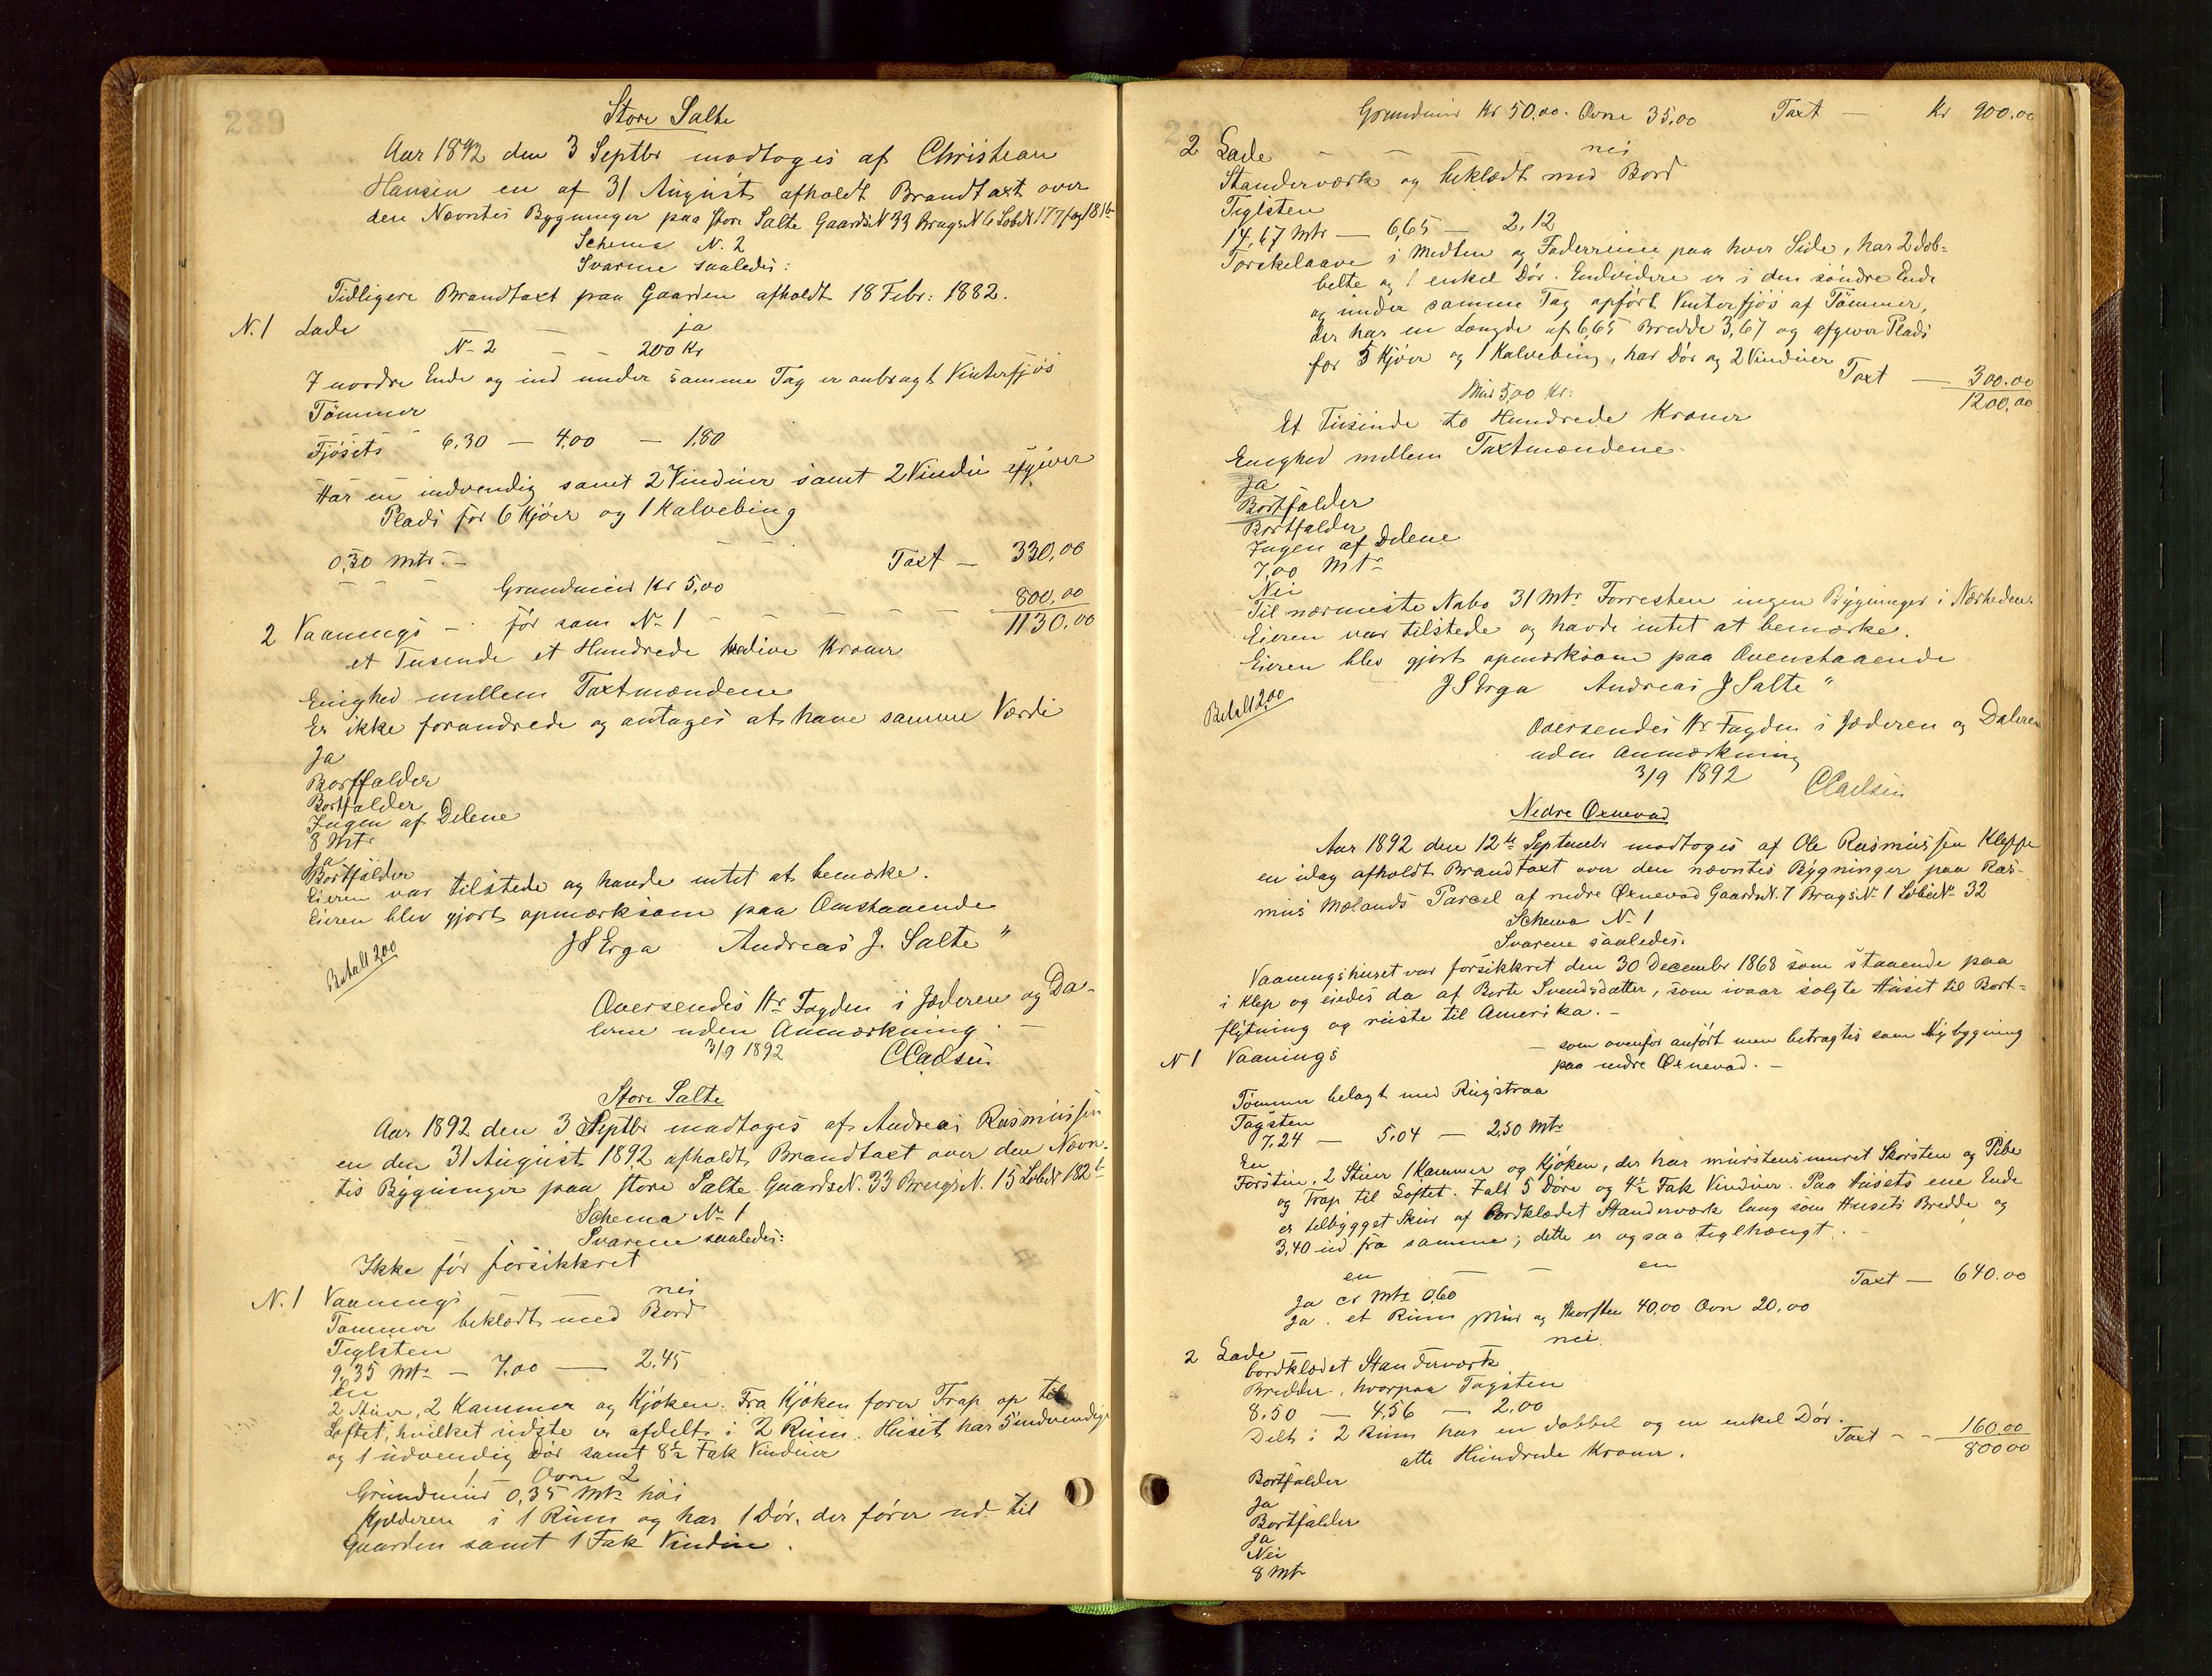 239
Store Salte
Aar 1892 den 3 Septbr modtoges af Christian
Hansen en af 31 August afholdt Brandtaxt over
den Nævntes Bygninger paa Store Salte GaardsN 33 BrugsN 6 LøbeN 177f og 181b
Schema N. 2
Svarene saaledes:
Tidligere Brandtaxt paa Gaarden afholdt 18 Febr: 1882.
N. 1 Lade — ja
N. 2 — - 200 Kr
I nordre Ende og ind under samme Tag er anbragt Vinterfjøs
Tømmer
Fjøsets 6.30 — 4.00 — 1.80
Har en indvendig samt 2 Vinduer samt 2 Vindu afgiver
Plads for 6 Kjøer og 1 Kalvebing
0,30 mtr. — Taxt — 330,00
Grundmur Kr 5,00
800,00
2 Vaanings — før som N. 1 - - - - 1130.00
et Tusende et Hundrede tredive Kroner
Enighed mellem Taxtmændene
Er ikke forandrede og antages at have samme Værdi
Ja
Bortfalder
Bortfalder
Ingen af Delene
8 Mtr
Ja
Bortfalder
Eieren var tilstede og havde intet at bemærke.
Eieren blev gjort opmærksom paa Omstaaende
J S Erga Andreas J. Salte "
Betalt 2,00
Oversendes Hr Fogden i Jæderen og Da-
lerne uden Anmærkning. —
3/9 1892 C Cadsen
Store Salte
Aar 1892 den 3 Septbr modtoges af Andreas Rasmussen
en den 31 August 1892 afholdt Brandtaxt over den Nævn-
tes Bygninger paa Store Salte GaardsN. 33 BrugsN. 15 LøbeN 182b
Schema N. 1
Svarene saaledes:
Ikke før forsikkret
N. 1 Vaanings — nei
Tømmer beklædt med Bord
Teglsten
9,35 Mtr — 7.00 — 2,45
En
2 Stuer, 2 Kammer og Kjøken. Fra Kjøken fører Trap op til
Loftet, hvilket sidste er afdelt i 2 Rum. Huset har 5 indvendige
og 1 udvendig Dør samt 8½ Fak Vinduer
1 — Ovne 2
Grundmur 0,35 Mtr høi
Kjelderen i 1 Rum og har 1 Dør, der fører ud til
Gaarden samt 1 Fak Vindue.
Grundmur Kr 50,00. Ovne 35,00 Taxt — Kr 900.00
2 Lade — - — nei
Standerværk og beklædt med Bord
Teglsten
14,67 Mtr — 6,65 — 2,12
Torskelaave i Midten og Foderrum paa hver Side, har 2 dob-
belte og 1 enkel Dør. Endvidere er i den søndre Ende
og under samme Tag opført Vinterfjøs af Tømmer,
der har en Længde af 6,65 Bredde 3,67 og afgiver Plads
for 5 Kjøer og 1 Kalvebing, har Dør og 2 Vinduer Taxt — 300.00
Mur 5,00 Kr: 1200,00
Et Tusinde to Hundrede Kroner
Enighed mellem Taxtmændene
Ja
Bortfalder
Bortfalder
Ingen af Delene
7,00 Mtr
Nei
Til nærmeste Nabo 31 Mtr Forresten ingen Bygninger i Nærheden.
Eieren var tilstede og havde intet at bemærke.
Eieren blev gjort opmærksom paa Ovenstaaende
J S Erga Andreas J Salte "
Betalt 2,00
Oversendes Hr Fogden i Jæderen og Dalerne
uden Anmærkning
3/9 1892 C Cadsen
Nedre Øxnevad
Aar 1892 den 12te Septembr modtoges af Ole Rasmussen Kleppe
en idag afholdt Brandtaxt over den nævntes Bygninger paa Ras-
mus Mælands Parcel af nedre Øxnevad GaardsN. 7 BrugsN. 1 LøbeN. 32
Schema N. 1
Svarene saaledes.
Vaaningshuset var forsikkret den 30 December 1868 som staaende paa
i Klep og eiedes da af Berte Svendsdatter, som ivaar solgte Huset til Bort-
flytning og reiste til Amerika. —
N 1 Vaanings — som ovenfor anført men betragtes som Nybygning
paa nedre Øxnevad. —
Tømmer belagt med Rugstraa
Tagsten
7,24 — 5,04 — 2,50 Mtr
En
Forstue, 2 Stuer 1 Kammer og Kjøken, der har murstensmuret Skorsten og Pibe
og Trap til Loftet. I alt 5 Døre og 4½ Fak Vinduer. Paa Husets ene Ende
er tilbygget Skur af bordklædet Standerværk lang som Husets Bredde og
3,40 ud fra samme; dette er ogsaa teglhængt. —
en — — en
Ja cr Mtr 0,60 Taxt — 640.00
Ja . et Rum Mur og Skorsten 40,00 Ovn 20,00
2 Lade nei.
bordklædet Standerværk
Bredder, hvorpaa Tagsten
8,50 — 4,56 — 2.00
Delt i 2 Rum har en dobbel og en enkel Dør. Taxt - - 160.00
atte Hundrede Kroner. 800 00
Bortfalder
Ja
Bortfalder
Ja
Nei
8 Mtr